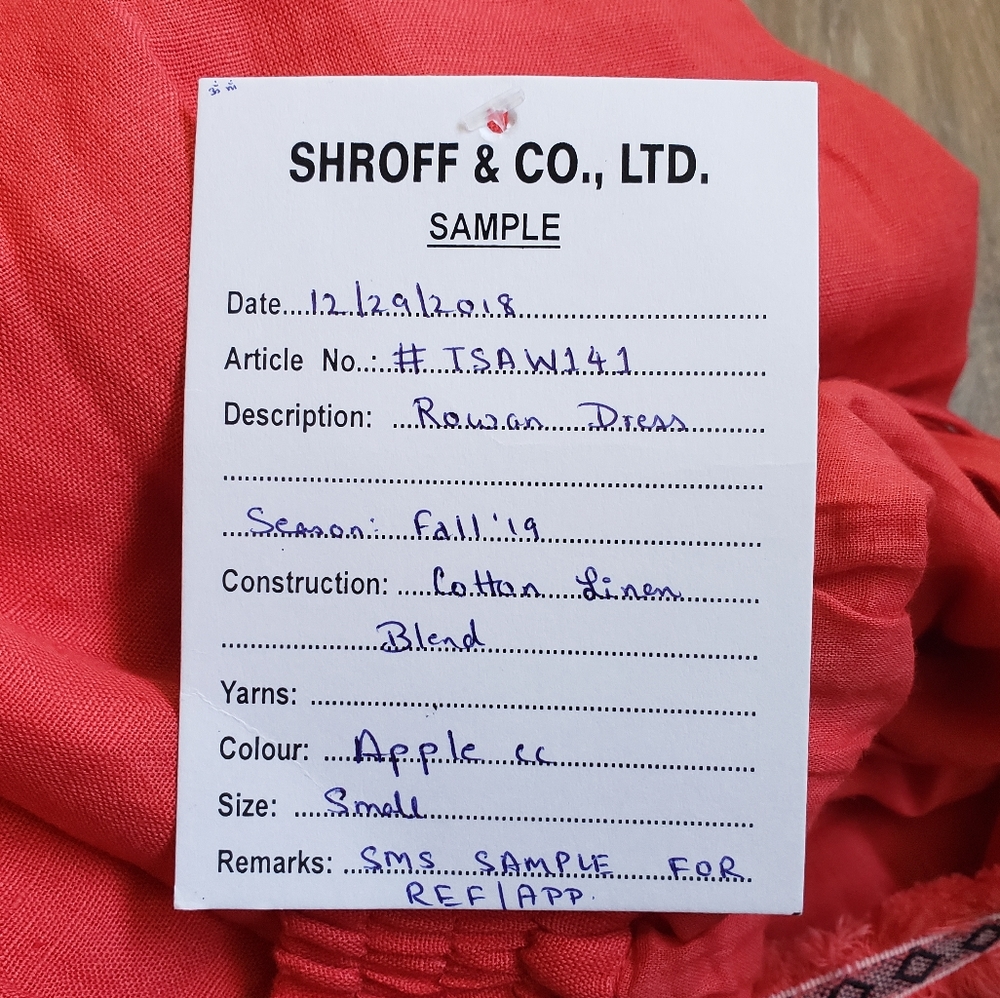 SHROFF & CO., LTD.
SAMPLE
Date....12/29/2018
Article No..:.# TSAW141
Description: ....Rowan Dress
Season: Fall '19
Construction: .....Cotton Linen
Blend
Yarns:
Colour: ...Apple cc
Size: .....Small
Remarks: ...SMS SAMPLE FOR
REF/APP.